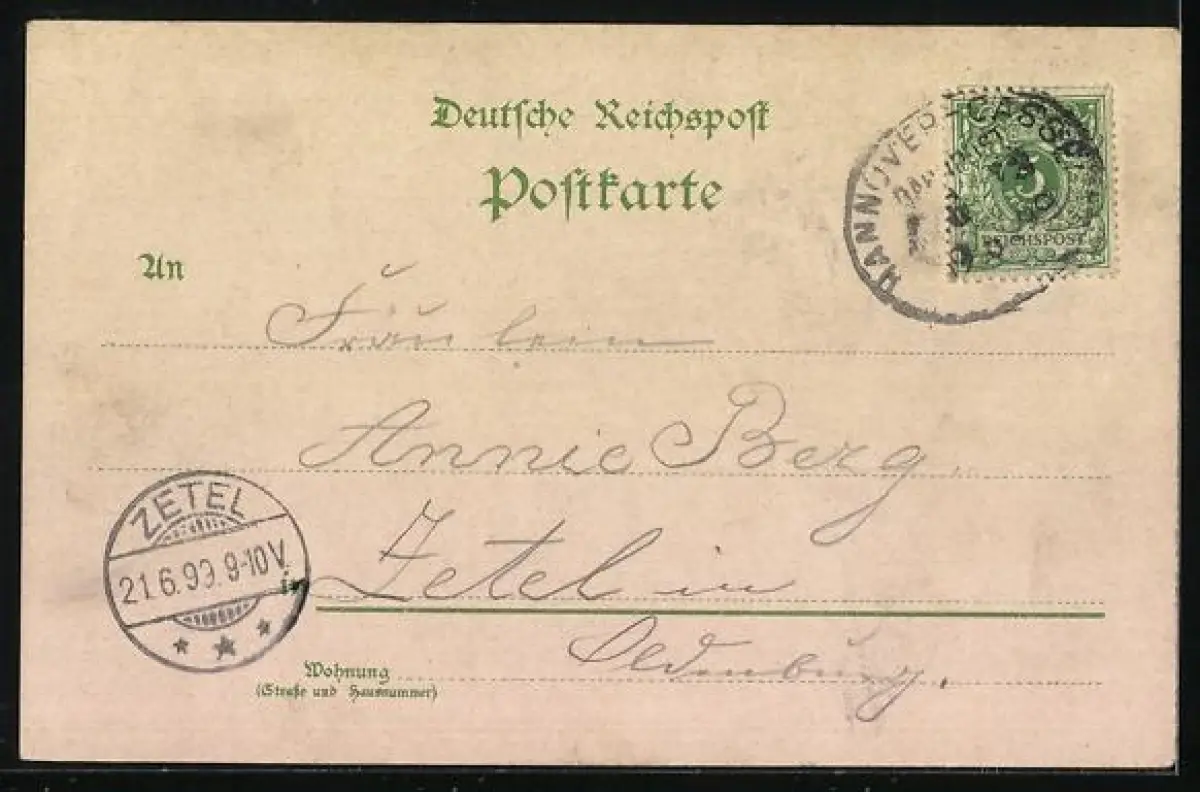 Deutsche Reichspost
Postkarte
HANNOVER-CASSEL
BAHNPOST
5
REICHSPOST
An
Fräulein
Annie Berg.
ZETEL
21.6.99. 9-10 V.
in
Zetel in
Oldenburg.
Wohnung
(Straße und Hausnummer)